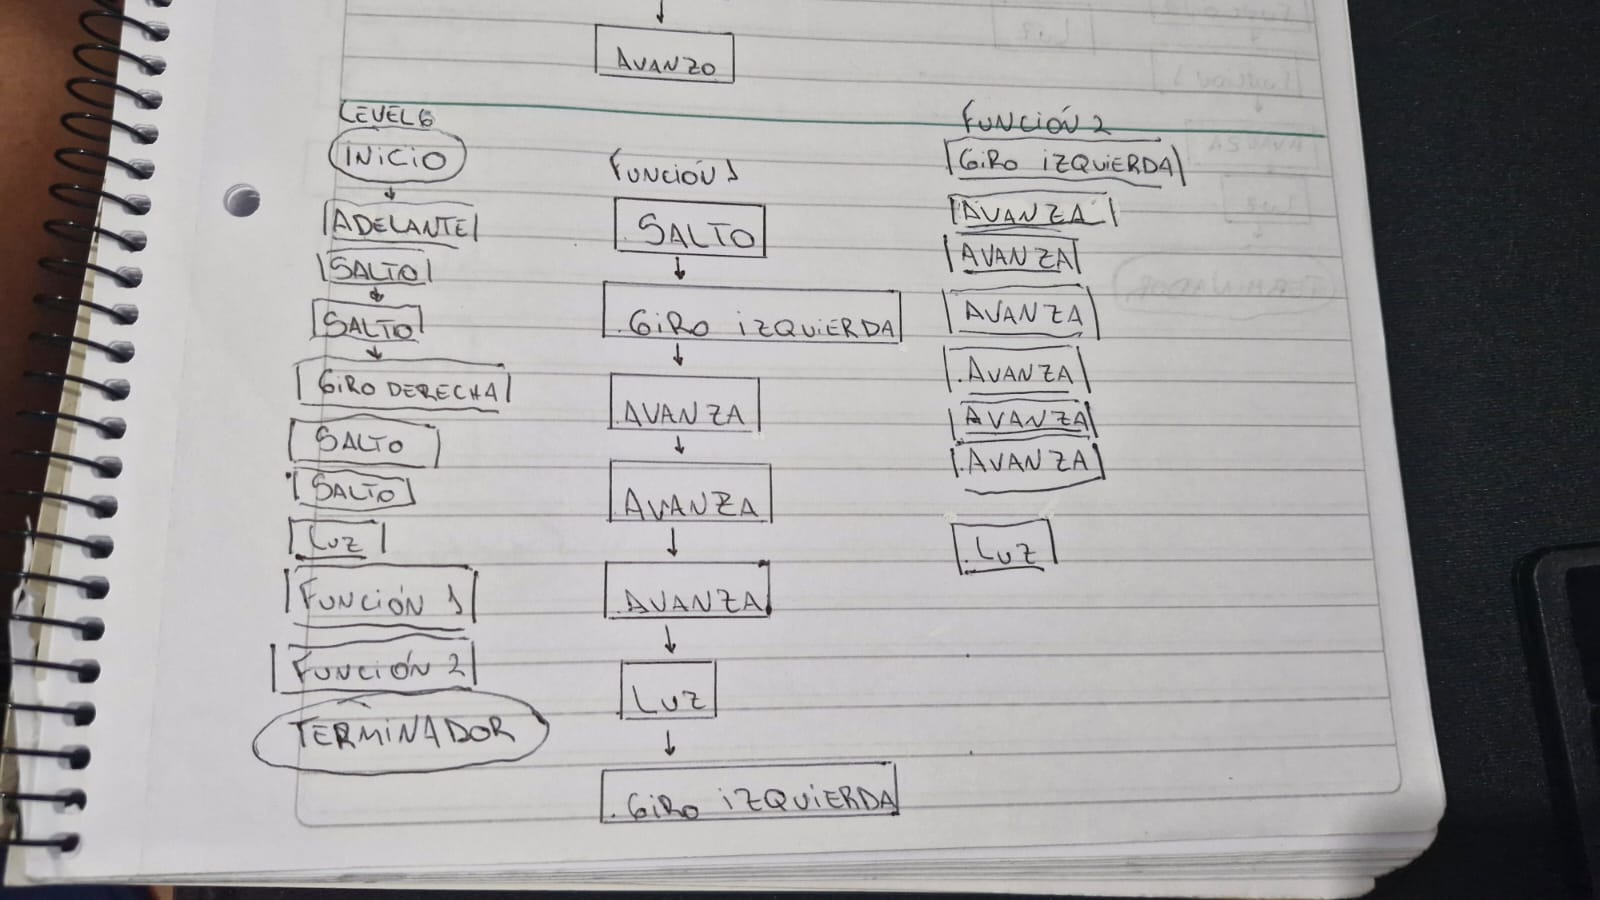 AVANZO
LEVEL 6
INICIO
ADELANTE
SALTO
SALTO
GIRO DERECHA
SALTO
SALTO
LUZ
FUNCIÓN 1
FUNCIÓN 2
TERMINADOR
FUNCIÓN 1
SALTO
GIRO IZQUIERDA
AVANZA
AVANZA
AVANZA
LUZ
GIRO IZQUIERDA
FUNCIÓN 2
GIRO IZQUIERDA
AVANZA
AVANZA
AVANZA
AVANZA
AVANZA
AVANZA
LUZ